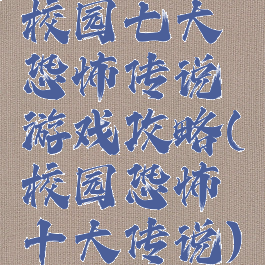 校园七大
恐怖传说
游戏攻略(
校园恐怖
十大传说)